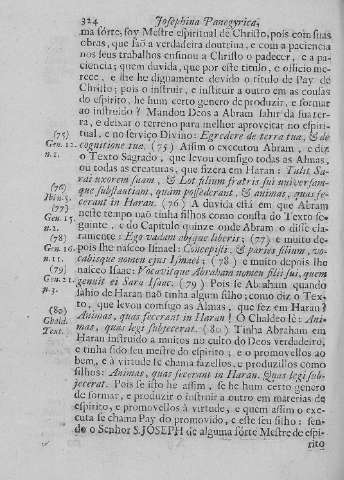 324 Josephina Panegyrica,
ma sórte, foy Mestre espiritual de Christo, pois com suas
obras, que saõ a verdadeira doutrina, e com a paciencia
nos seus trabalhos ensinou a Christo o padecer, e a pa-
ciencia; quem duvida, que por este titulo, e officio me-
rece, e lhe he dignamente devido o titulo de Pay de
Christo; pois o instruir, e instituir a outro em as cousas
do espirito, he hum certo genero de produzir, e formar
ao instruido? Mandou Deos a Abram sahir da sua ter-
ra, e deixar o terreno para melhor aproveitar no espiri-
(75) tual, e no serviço Divino: Egredere de terra tua, & de
Gen. 12. cognatione tua. (75) Assim o executou Abram, e diz
n.1. o Texto Sagrado, que levou comsigo todas as Almas,
ou todas as creaturas, que fizera em Haran: Tulit Sa-
rai uxorem suam, & Lot filium fratris sui universam-
(76) que substantiam, quam possederant, & animas, quas fe-
Ibi n.5. cerant in Haran. (76) A duvida está em que Abram
(77) neste tempo naõ tinha filhos como consta do Texto se-
Gen. 15. guinte, e do Capitulo quinze onde Abram o disse cla-
n.2. ramente: Ego vadam absque liberis; (77) e muito de-
(78) pois lhe nàceo Ismael: Concepisti, & paries filium, vo-
Gen. 16. cabisque nomen ejus Ismael; (78) e muito depois lhe
n.11. nàsceo Isaac: Vocavitque Abraham nomen filii sui, quem
(79) genuit ei Sara Isaac. (79) Pois se Abraham quando
Gen. 21. sahio de Haran naõ tinha algum filho; como diz o Tex-
n.3. to, que levou comsigo as Almas, que fez em Haran?
(80) Animas, quas fecerant in Haran? O Chaldeo lè: Ani-
Chald. mas, quas legi subjecerat. (80) Tinha Abraham em
Text. Haran instruido a muitos no culto do Deos verdadeiro,
e tinha sido seu mestre do espirito; e o promovellos ao
bem, e á virtude se chama fazellos, e produzillos como
filhos: Animas, quas fecerant in Haran. Quas legi sub-
jecerat. Pois se isso he assim, se he hum certo genero
de formar, e produzir o instruir a outro em materias de
espirito, e promovellos à virtude, e quem assim o exe-
cuta se chama Pay do promovido, e este seu filho: sen-
do o Senhor S. JOSEPH de alguma sórte Mestre de espi-
rito